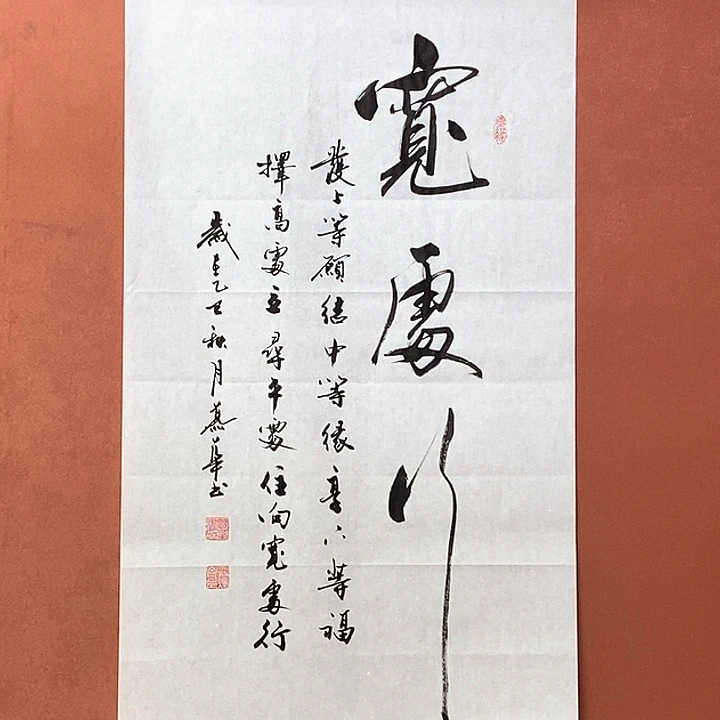 寬處行
發上等願結中等緣享下等福
擇高處立尋平處住向寬處行
歲在乙巳秋月慕華書